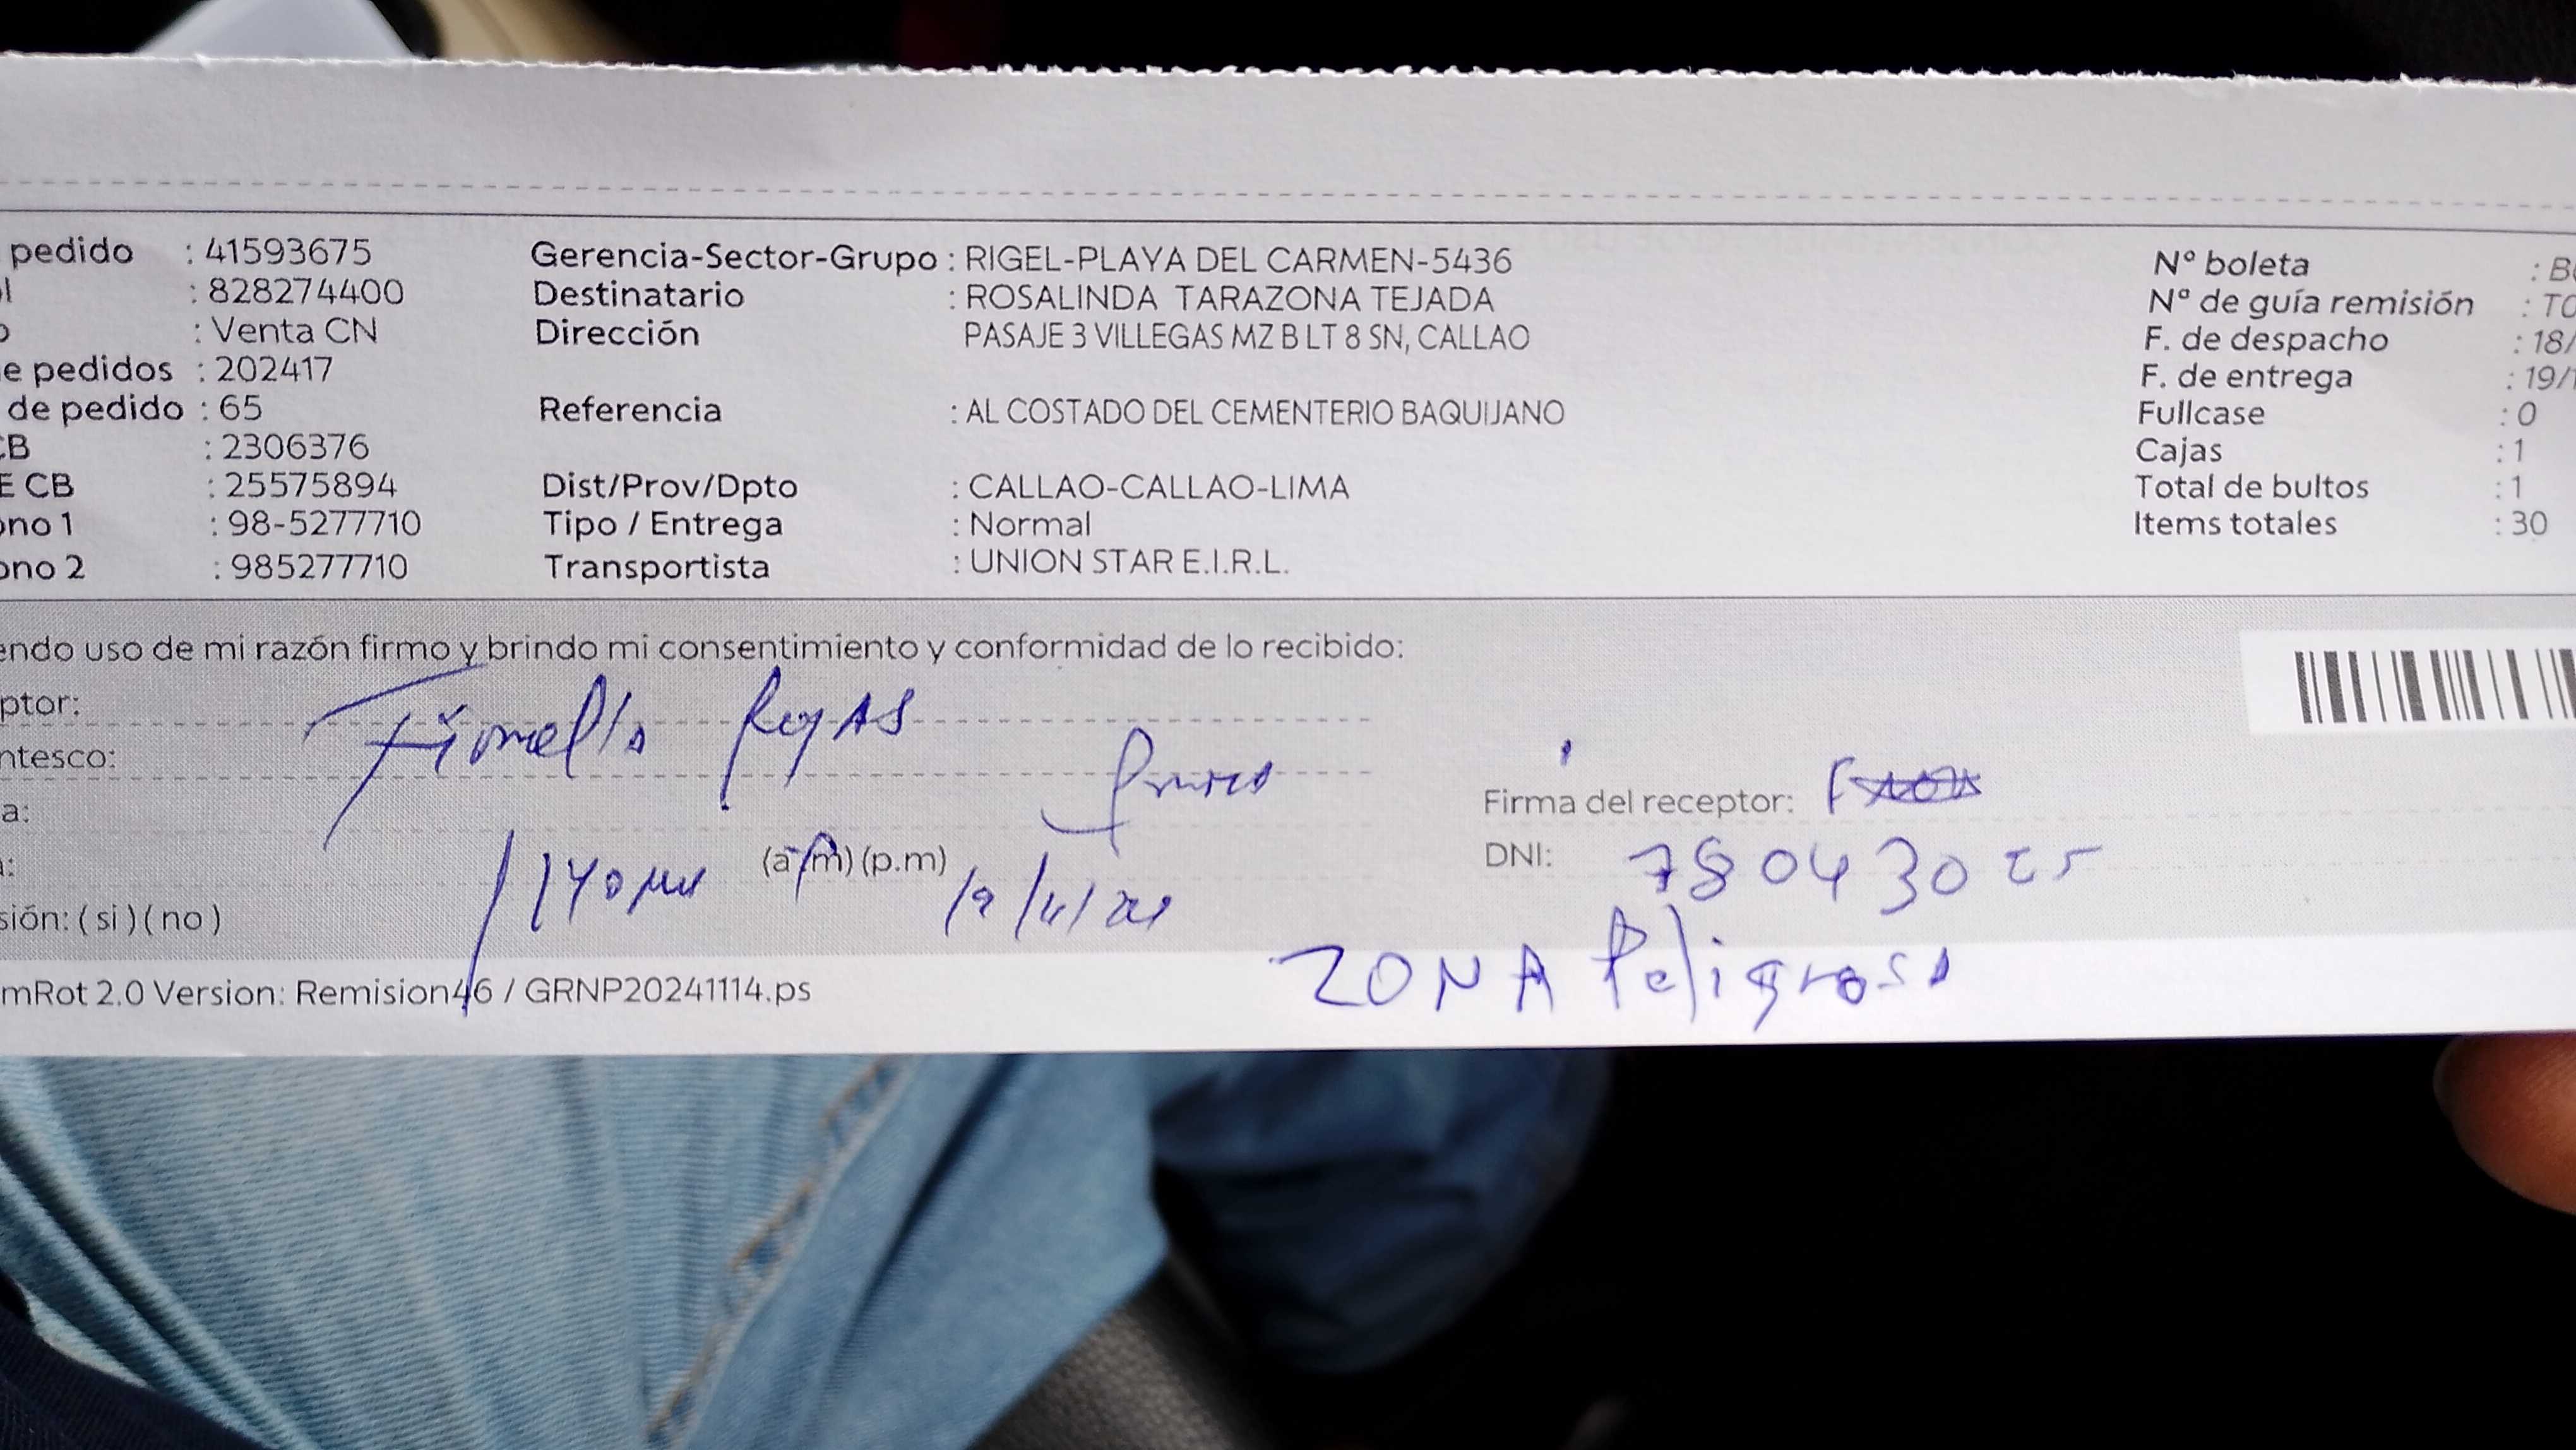 pedido : 41593675 Gerencia-Sector-Grupo : RIGEL-PLAYA DEL CARMEN-5436 N° boleta : B
: 828274400 Destinatario : ROSALINDA TARAZONA TEJADA N° de guía remisión : T0
: Venta CN Dirección PASAJE 3 VILLEGAS MZ B LT 8 SN, CALLAO F. de despacho : 18/
e pedidos : 202417 F. de entrega : 19/1
de pedido : 65 Referencia : AL COSTADO DEL CEMENTERIO BAQUIJANO Fullcase : 0
CB : 2306376 Cajas : 1
E CB : 25575894 Dist/Prov/Dpto : CALLAO-CALLAO-LIMA Total de bultos : 1
ono 1 : 98-5277710 Tipo / Entrega : Normal Items totales : 30
ono 2 : 985277710 Transportista : UNION STAR E.I.R.L.
endo uso de mi razón firmo y brindo mi consentimiento y conformidad de lo recibido:
ptor: Fiorella Rojas
ntesco:
a: Firma del receptor:
: 1140 (a.m) (p.m) DNI: 78043025
sión: ( si ) ( no )
ZONA Peligrosa
mRot 2.0 Version: Remision46 / GRNP20241114.ps